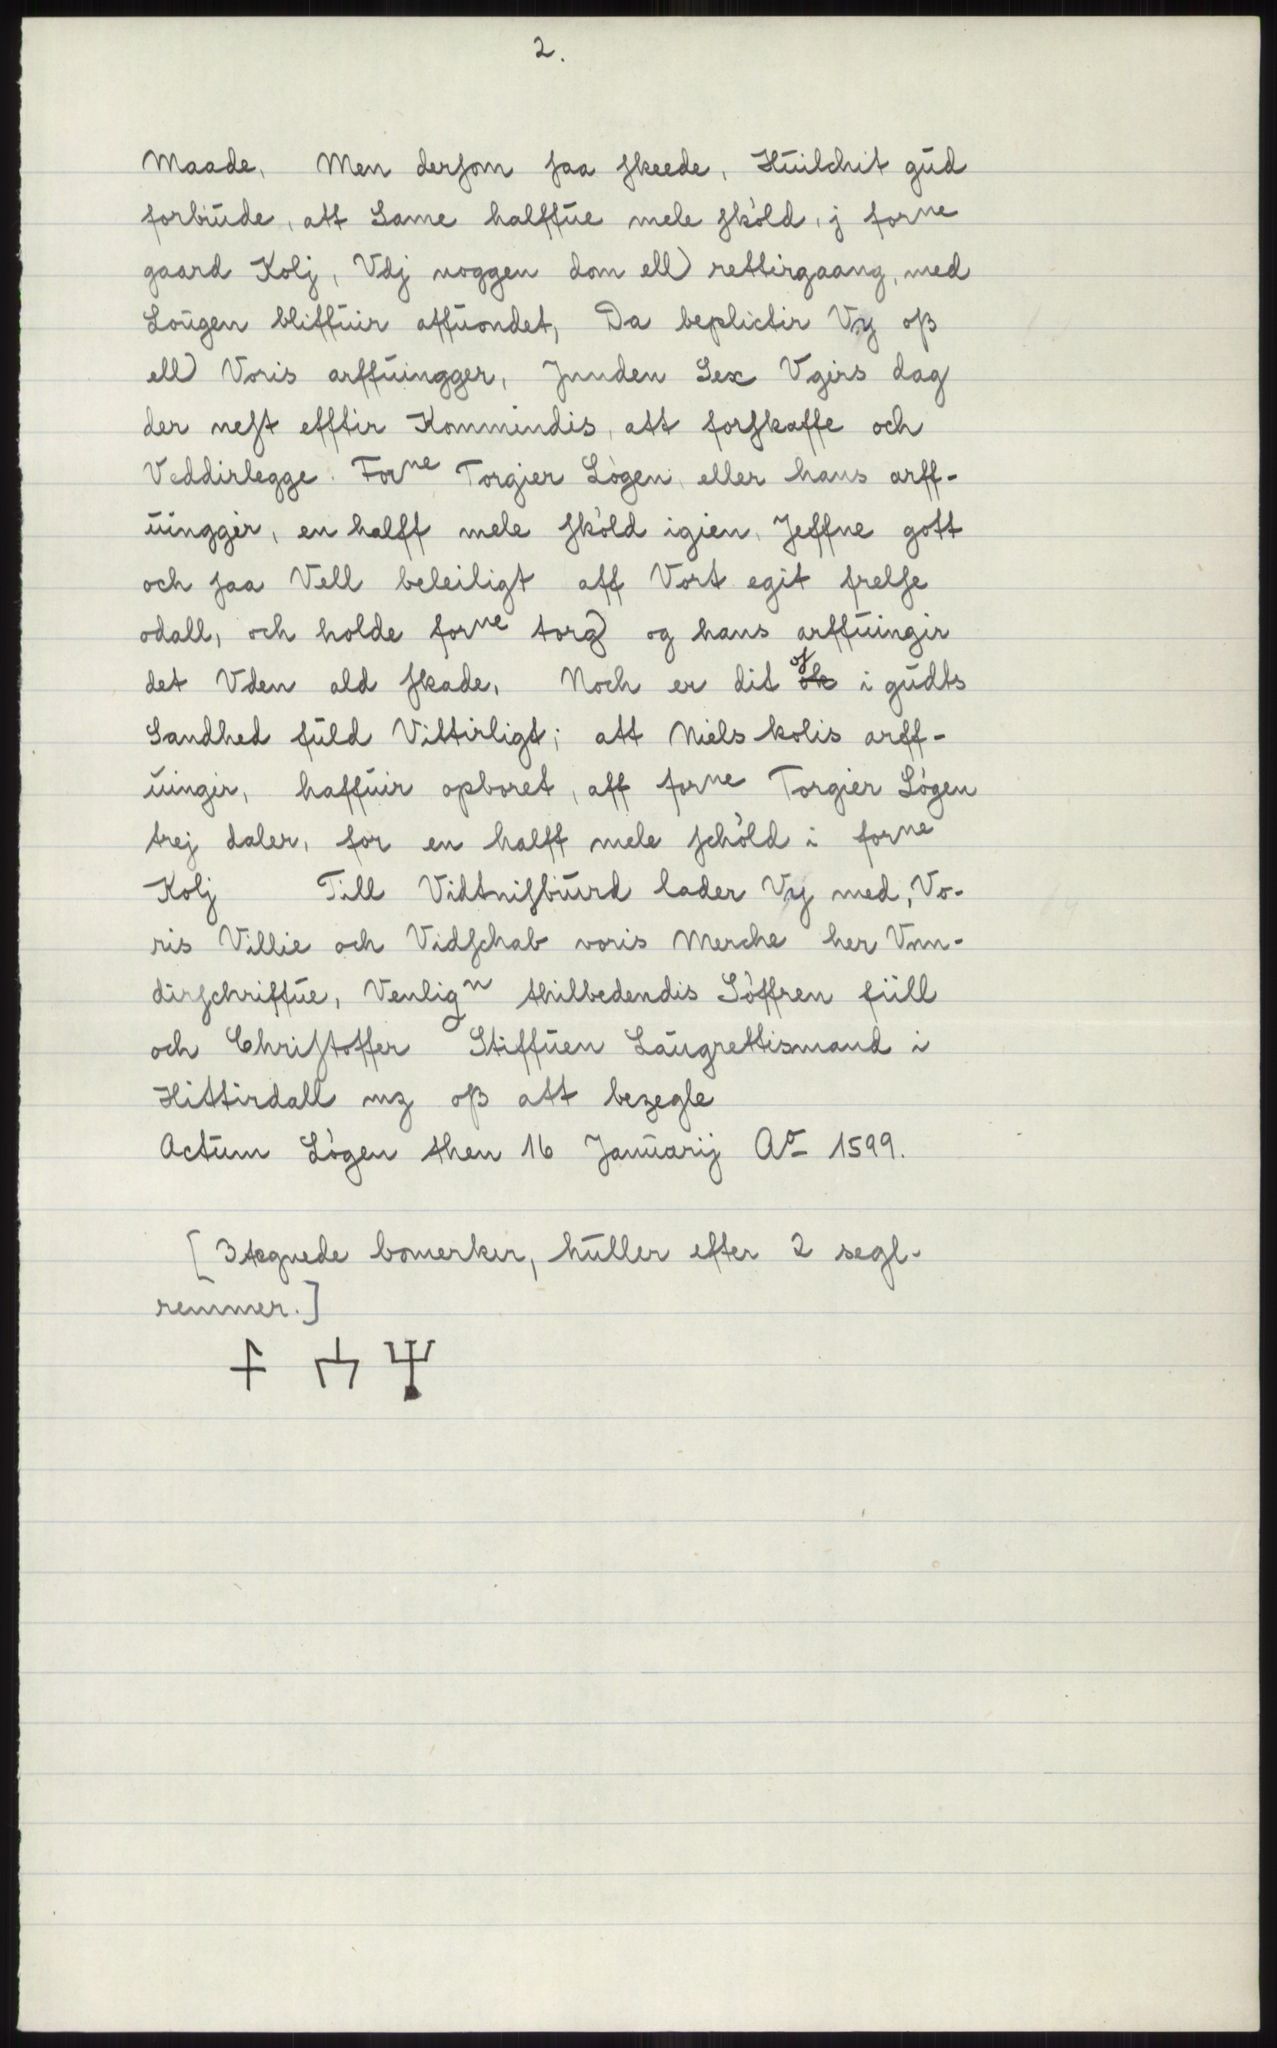 2.
Maade, Men dersom saa skeede, Huilchit gud
forbiude, att Same halffue mele sköld, j forne
gaard Kolj, Vdj noggen dom ell) rettirgaang, med
Lougen bliffuir affuondet, Da beplictir Vy oß
ell) Voris arffuingger, Jnnden Sex Vgirs dag
der nest efftir Kommindis, att forskaffe och
Veddirlegge Forne Torgier Lögen, eller hans arff-
uinggir, en halff mele sköld igien, Jeffne gott
och saa Vell beleiligt aff Vort egit frelse
odall, och holde forne torg) og hans arffuingir
det Vden ald skade, Noch er dit oß ok i gudts
Sandhed fuld Vittirligt; att Niels kolis arff-
uingir, haffuir opboret, aff forne Torgier Lögen
trej daler, for en halff mele schöld i forne
Kolj Till Vidtnisburd lader Vy med, Vo-
ris Villie och Vidschab voris Merche her Vnn-
dirschriffue, Venlign thilbedendis Söffren fiill
och Christoffer Stiffuen Laugrettismand i
Hittirdall mz oß att bezegle
Actum Lögen then 16 Januarij Ao 1599.
[3 tegnede bomerker, huller efter 2 segl-
remmer.]